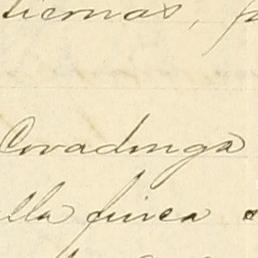 tiernas,
Covadonga
lla finca